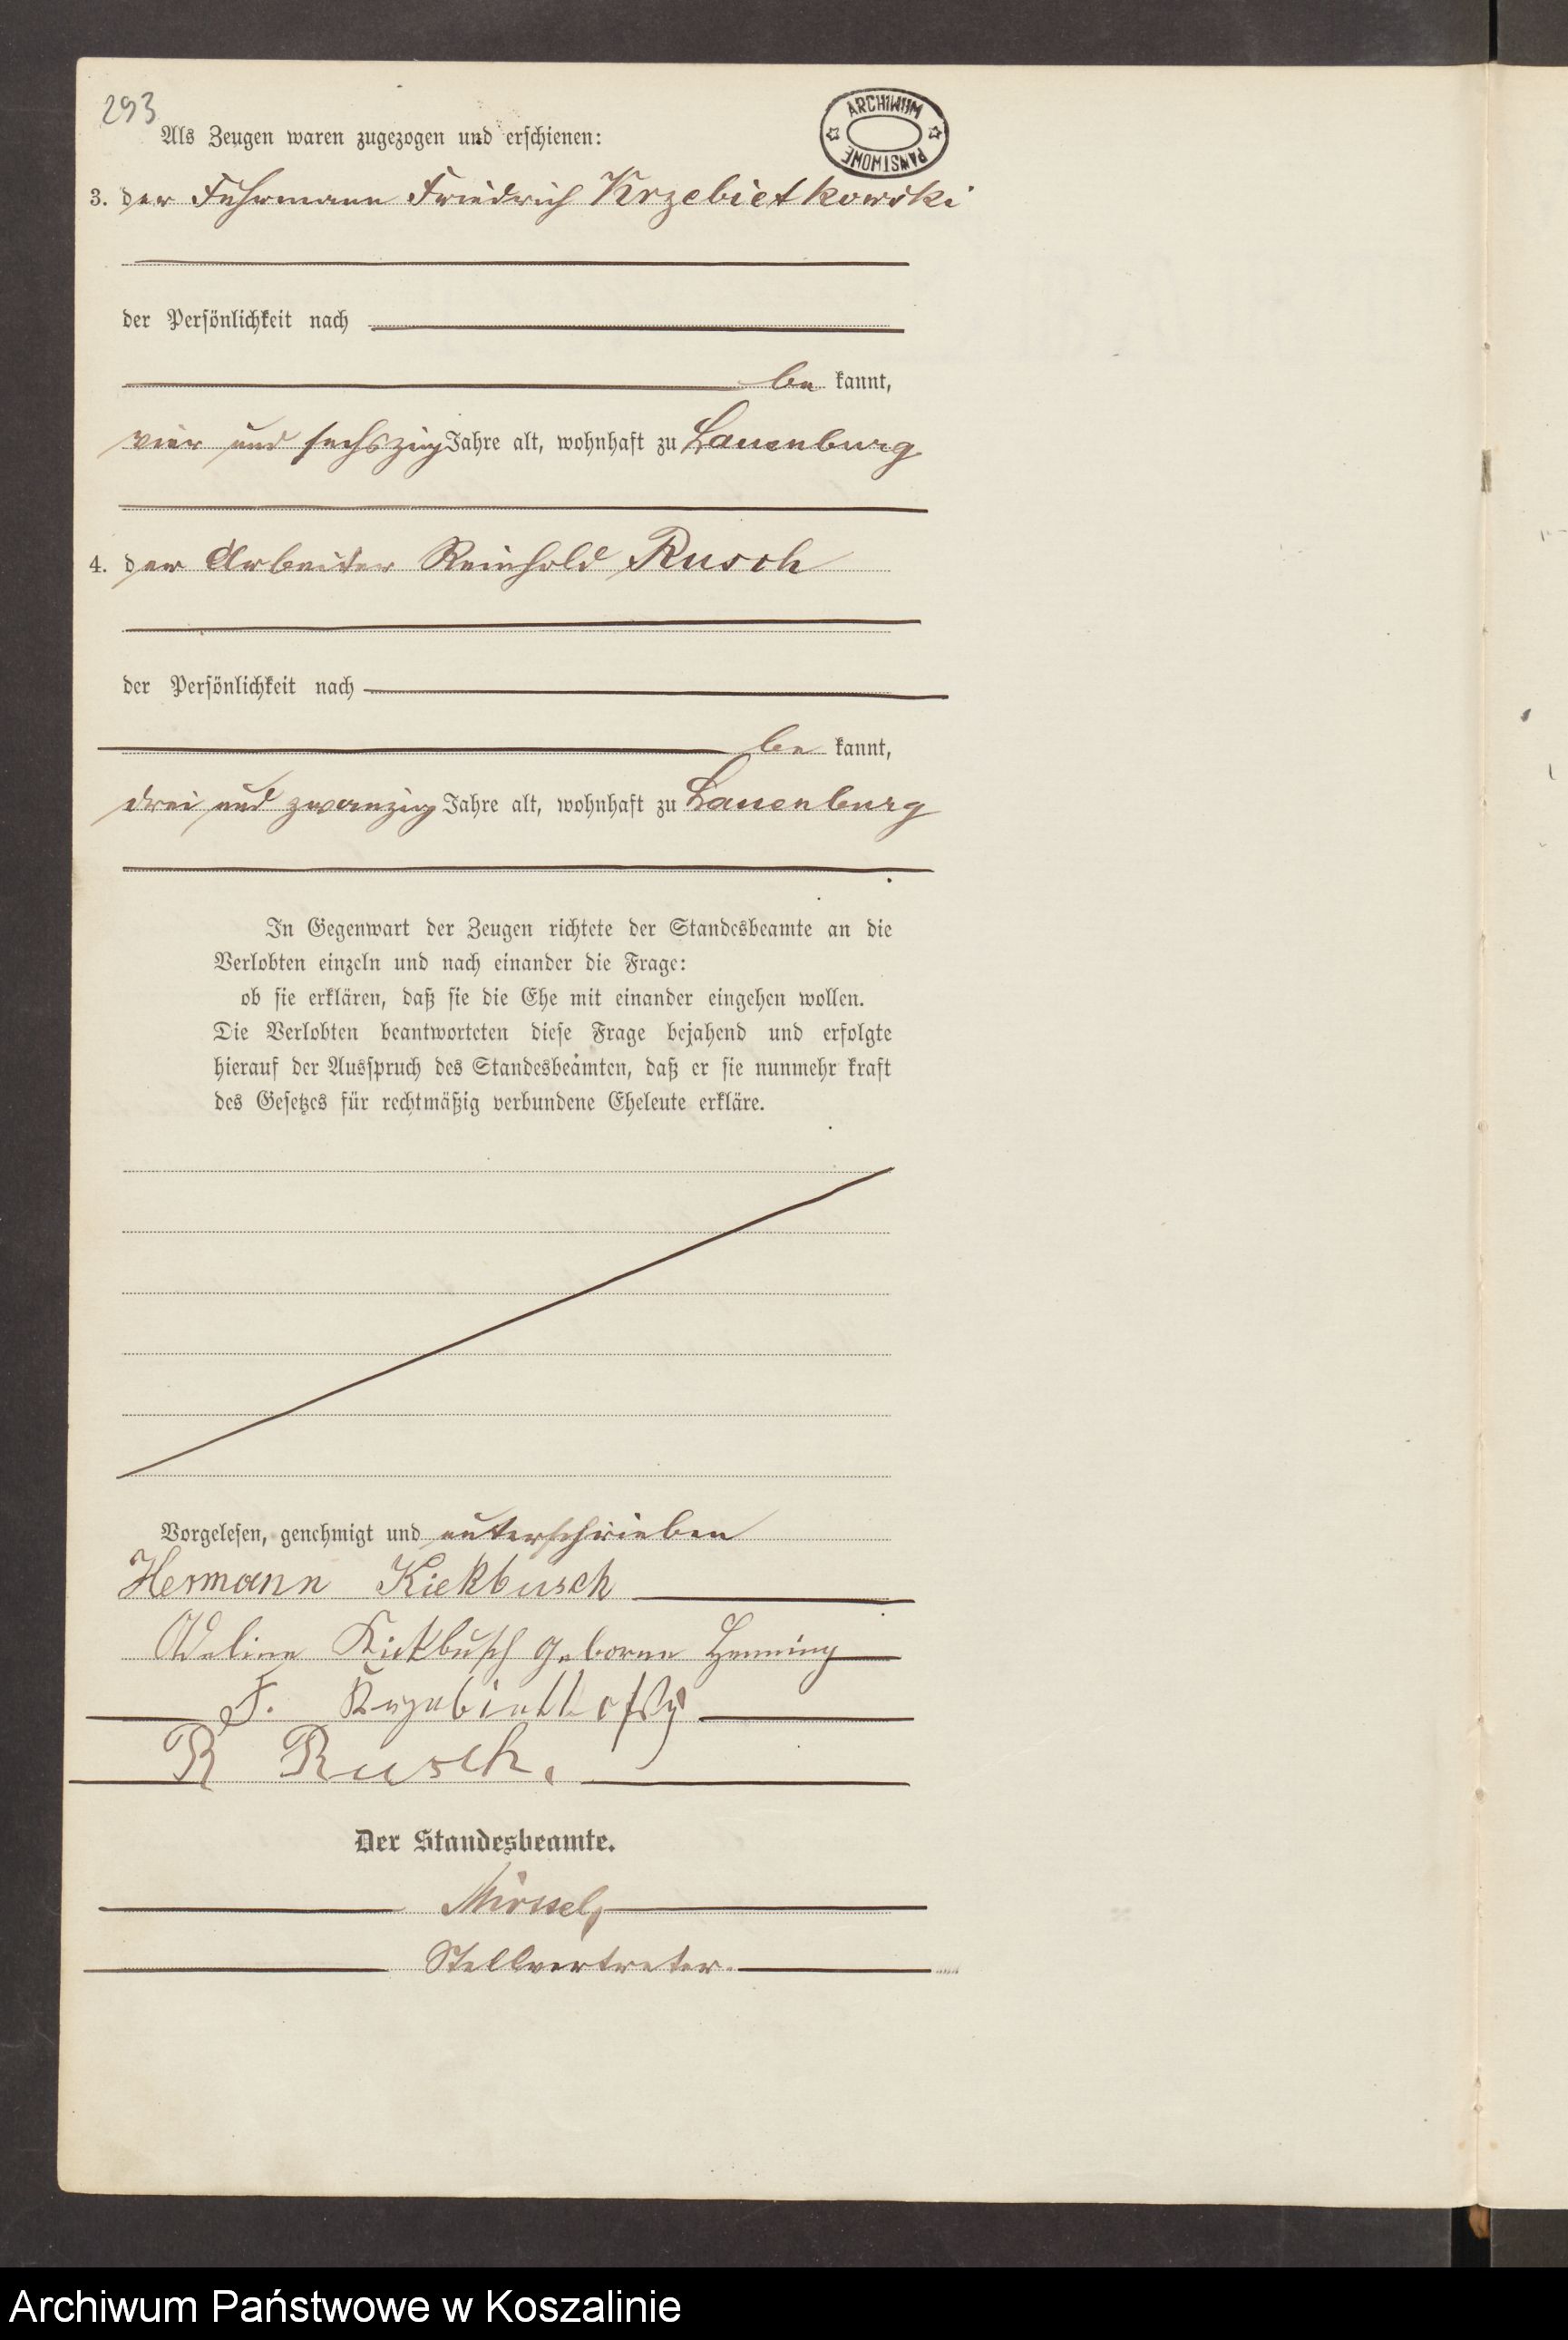 293
ARCHIWUM PAŃSTWOWE
Als Zeugen waren zugezogen und erschienen:
3. der Fuhrmann Friedrich Krzebietkowski
der Persönlichkeit nach
be kannt,
vier und sechszig Jahre alt, wohnhaft zu Lauenburg
4. der Arbeiter Reinhold Rusch
der Persönlichkeit nach
be kannt,
drei und zwanzig Jahre alt, wohnhaft zu Lauenburg
In Gegenwart der Zeugen richtete der Standesbeamte an die
Verlobten einzeln und nach einander die Frage:
ob sie erklären, daß sie die Ehe mit einander eingehen wollen.
Die Verlobten beantworteten diese Frage bejahend und erfolgte
hierauf der Ausspruch des Standesbeamten, daß er sie nunmehr kraft
des Gesetzes für rechtmäßig verbundene Eheleute erkläre.
Vorgelesen, genehmigt und unterschrieben
Hermann Kiekbusch
Adeline Kickbusch geborne Henning
F.
R Rusch.
Der Standesbeamte.
Stellvertreter.
Archiwum Państwowe w Koszalinie